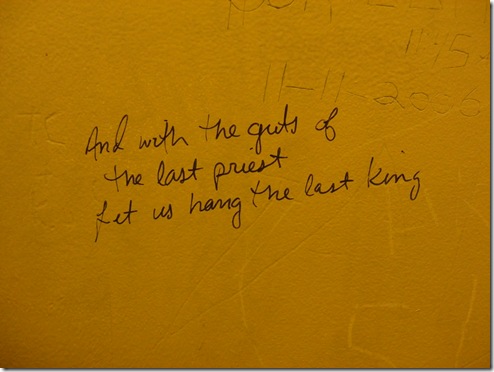 1:15
11-11-2006
And with the guts of
the last priest
Let us hang the last King